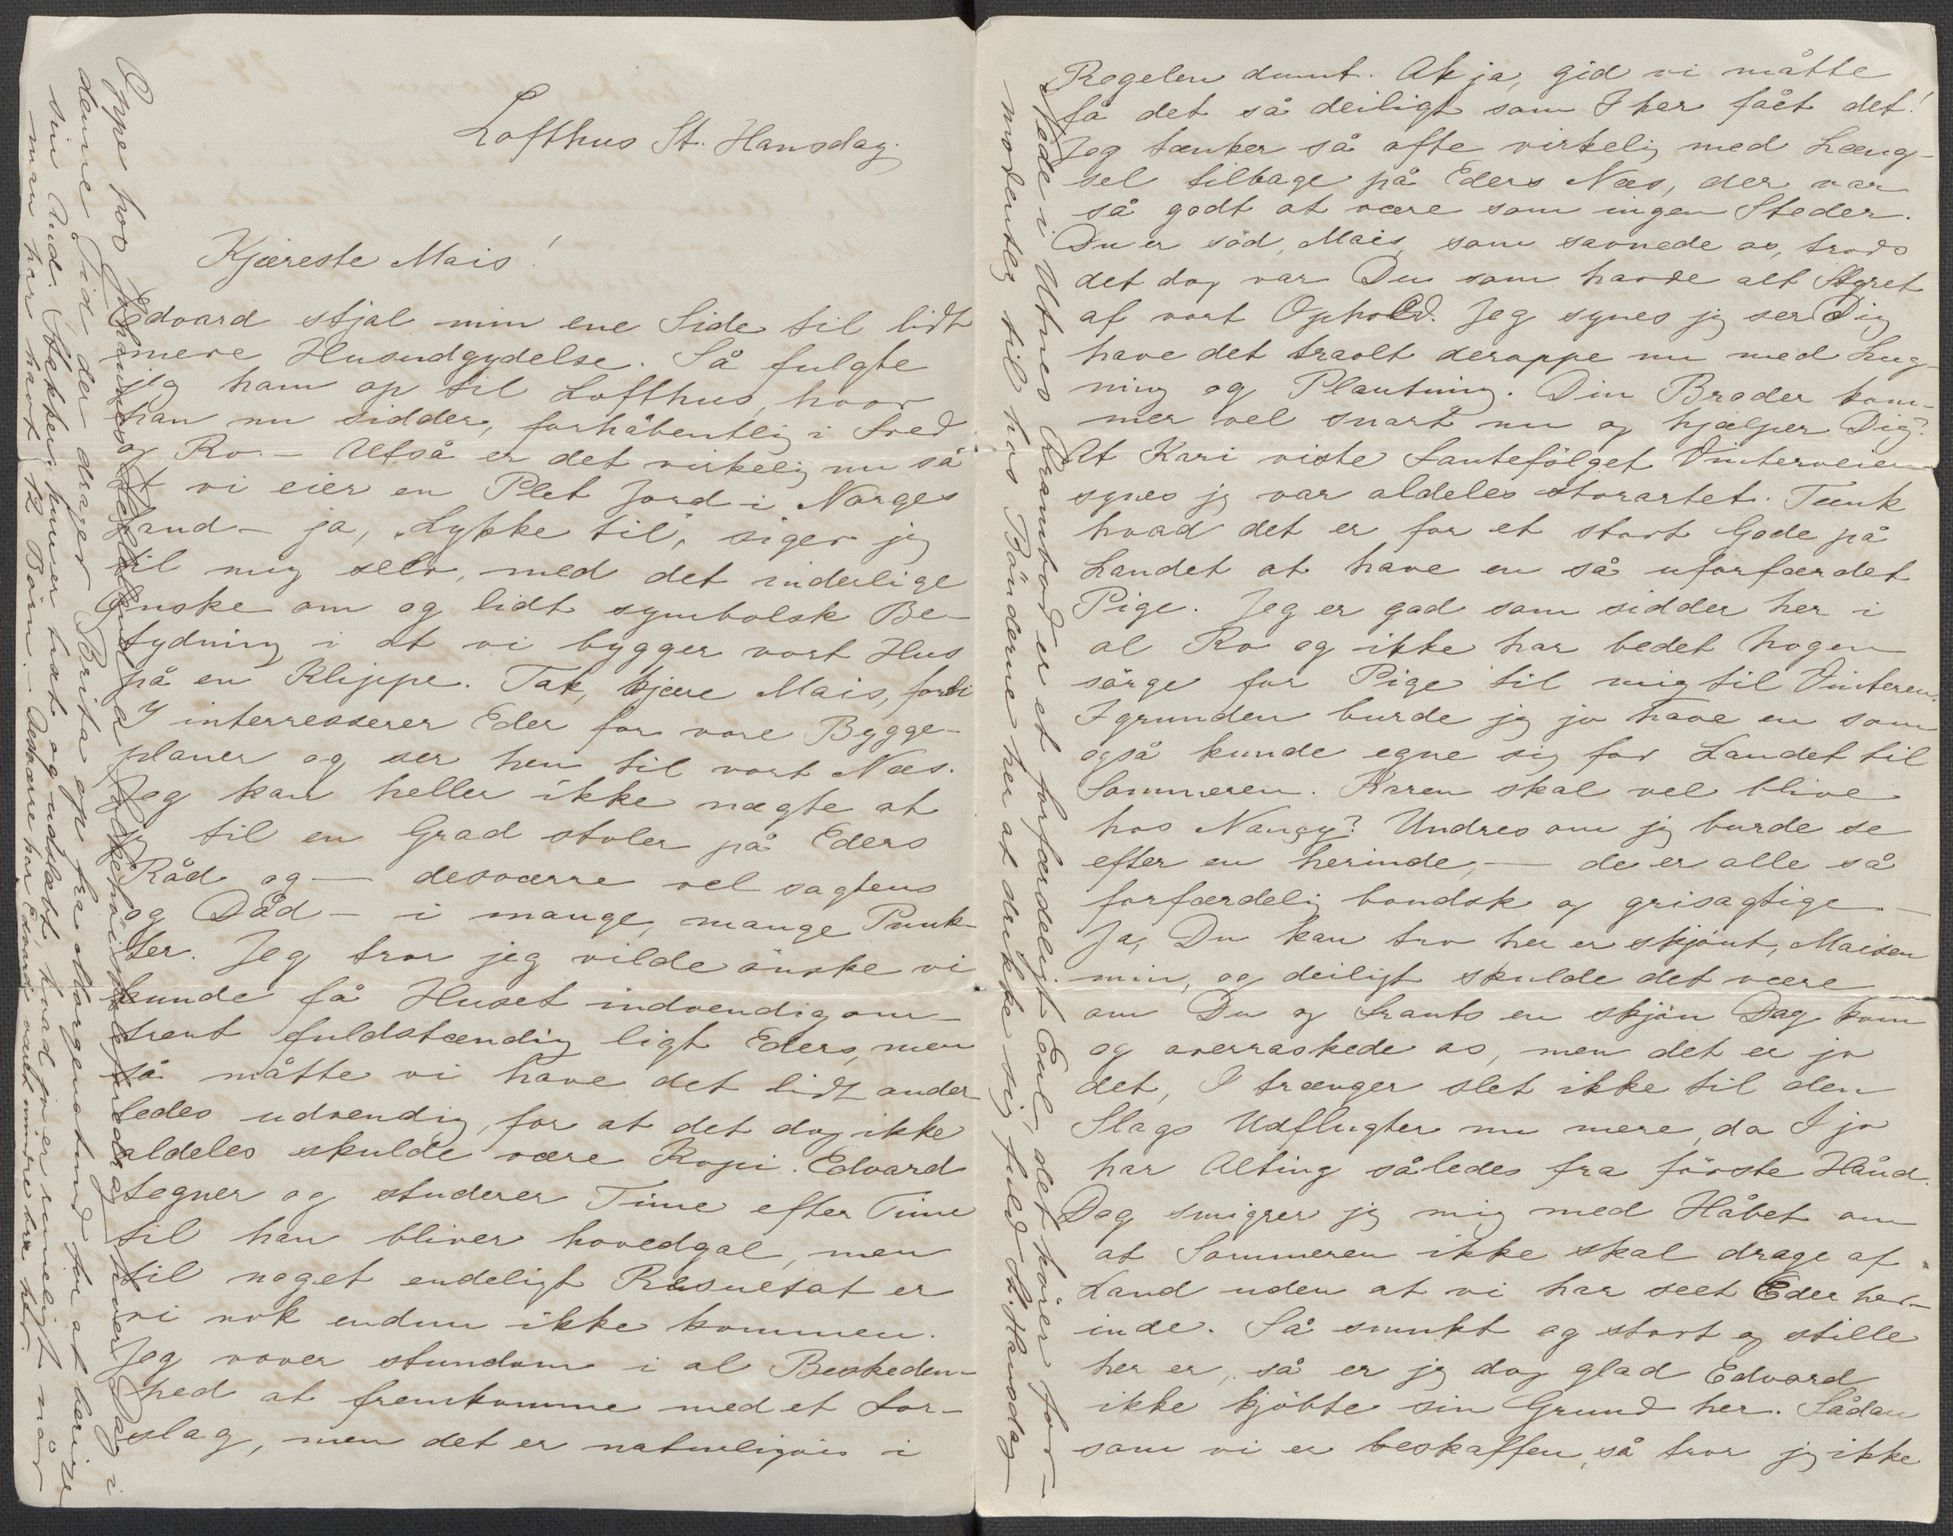 Lofthus St. Hansdag.
Kjæreste Mais!
Edvard stjal min ene Side til lidt
mere Husudgydelse. Så fulgte
jeg ham op til Lofthus, hvor
han nu sidder, forhåbentlig i Fred
og Ro. – Altså er det virkelig nu så
at vi eier en Plet Jord i Norges
Land – ja, "Lykke til", siger jeg
til mig selv, med det inderlige
Ønske om og lidt symbolsk Be-
tydning i at vi bygger vort Hus
på en Klippe. Tak, kjære Mais, fordi
I interresserer Eder for vore Bygge-
planer og ser hen til vort Næs.
Jeg kan heller ikke nægte at
jeg til en Grad stoler på Eders
Råd og – desværre vel sagtens
og Dåd – i mange, mange Punk-
ter. Jeg tror jeg vilde ønske vi
kunde få Huset indvendig om-
trent fuldstændig ligt Eders, men
så måtte vi have det lidt ander-
ledes udvendig, for at det dog ikke
aldeles skulde være Kopi. Edvard
tegner og studerer Time efter Time
til han bliver hovedgal, men
til noget endeligt Resultat er
vi nok endnu ikke kommen.
Jeg vover stundom i al Beskeden-
hed at fremkomme med et For-
slag, men det er naturligvis i
Oppe hos Johannes og hver Dag i
denne Tid der drager Brita op fra Morgenstund for at berise
sin Aud. Stakker, hun er træt og udslæbt, hvad jo er rimeligt når
man har havt 12 Børn. – Desværre har Edvard været mindre bra her.
Regelen dumt. Ak ja, gid vi måtte
få det så deiligt som I her fået det!
Jeg tænker så ofte virkelig med Læng-
sel tilbage på Eders Næs, der var
så godt at være som ingen Steder.
Du er söd, Mais, som savnede os, trods
det dog var Du som havde alt Styret
af vort Ophold. Jeg synes jeg ser Dig
have det travlt deroppe nu med Lug-
ning og Plantning. Din Broder kom-
mer vel snart nu og hjælper Dig?
At Kari viste Santefölget Vinterveien
synes jeg var aldeles storartet. Tænk
hvad det er for et stort Gode på
Landet at have en så uforfærdet
Pige. Jeg er god som sidder her i
al Ro og ikke har bedet Nogen
sörge for Pige til mig til Vinteren.
Igrunden burde jeg jo have en som
også kunde egne sig for Landet til
Sommeren. Karen skal vel blive
hos Nancy? Undres om jeg burde se
efter en herinde, – de er alle så
forfærdelig bondsk og grisagtige –
Ja, Du kan tro her er skjönt, Maisen
min, og deiligt skulde det være
om Du og Frants en skjön Dag kom
og overraskede os, men det er jo
det, I trænger slet ikke til den
Slags Udflugter nu mere, da I jo
har Alting således fra förste Hånd.
Dog smigrer jeg mig med Håbet om
at Sommeren ikke skal drage af
Land uden at vi har seet Eder her-
inde. Så smukt og stort og stille
her er, så er jeg dog glad Edvard
ikke kjöbte sin Grund her. Sådan
som vi er beskaffen, så tror jeg ikke
Nåde i Utnes Brambod er et forfærdeligt Enl, det hörer for-
modentlig til hos Bönderne her at drikke sig fuld St. Hansdag